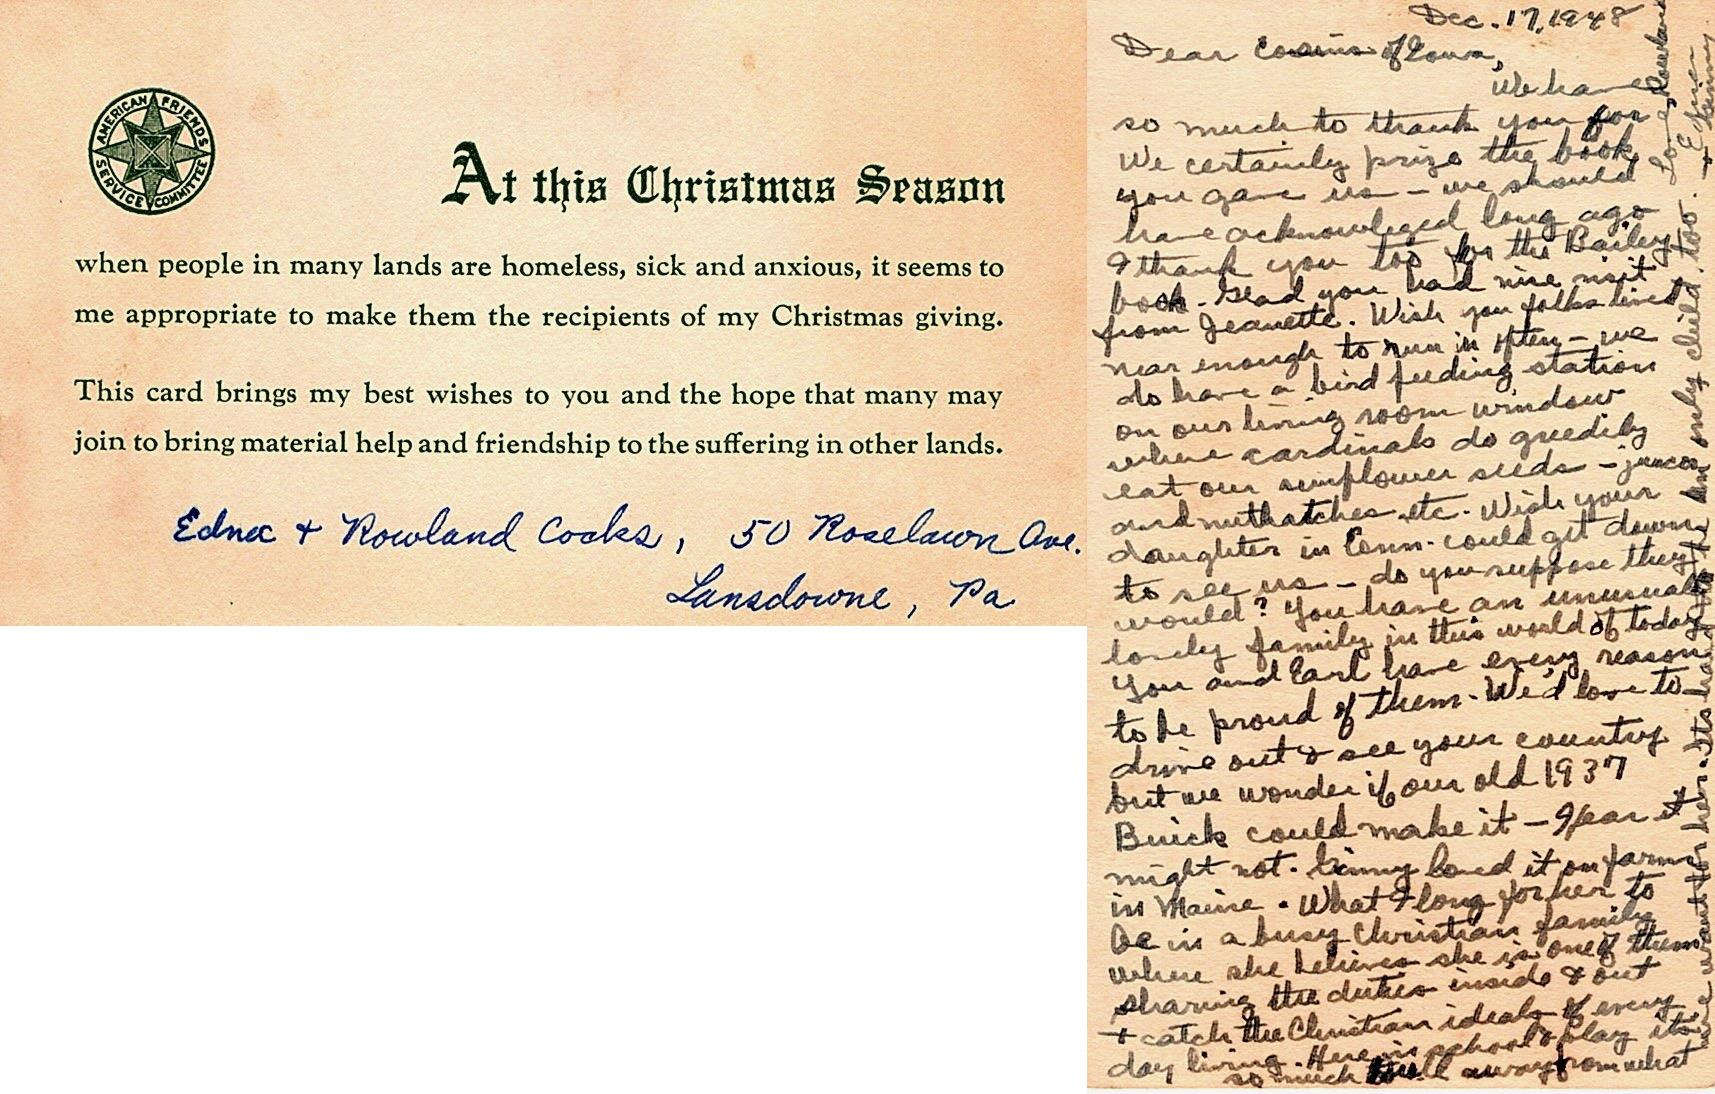 AMERICAN FRIENDS
SERVICE COMMITTEE
At this Christmas Season
when people in many lands are homeless, sick and anxious, it seems to
me appropriate to make them the recipients of my Christmas giving.
This card brings my best wishes to you and the hope that many may
join to bring material help and friendship to the suffering in other lands.
Edna + Rowland Cocks, 50 Roselawn Ave.
Lansdowne, Pa
Dec. 17, 1948
Dear Cousins of Iowa,
We have
so much to thank you for
We certainly prize the book
you gave us – we should
have acknowleged long ago
I thank you too for the Bailey
book. Glad you had nice visit
from Jeanette. Wish you folks lived
near enough to run in often – we
do have a bird feeding station
on our living room window
where cardinals do greedily
eat our sunflower seeds – juncos
and nuthatches etc. Wish your
daughter in Conn. could get down
to see us – do you suppose they
would? You have an unusually
lovely family in this world of today
You and Earl have every reason
to be proud of them. We'd love to
drive out & see your country
but we wonder if our old 1937
Buick could make it – I fear it
might not. Ginny loved it on farm
in Maine. What I long for her to
be in a busy Christian family
where she believes she is one of them
sharing the duties inside & out
+ catch the Christian ideals of every
day living. Here in school & play its
so much away from what
we want for her. Its hard to be an only child, too.
Love, Rowland
Edna
+ Ginny